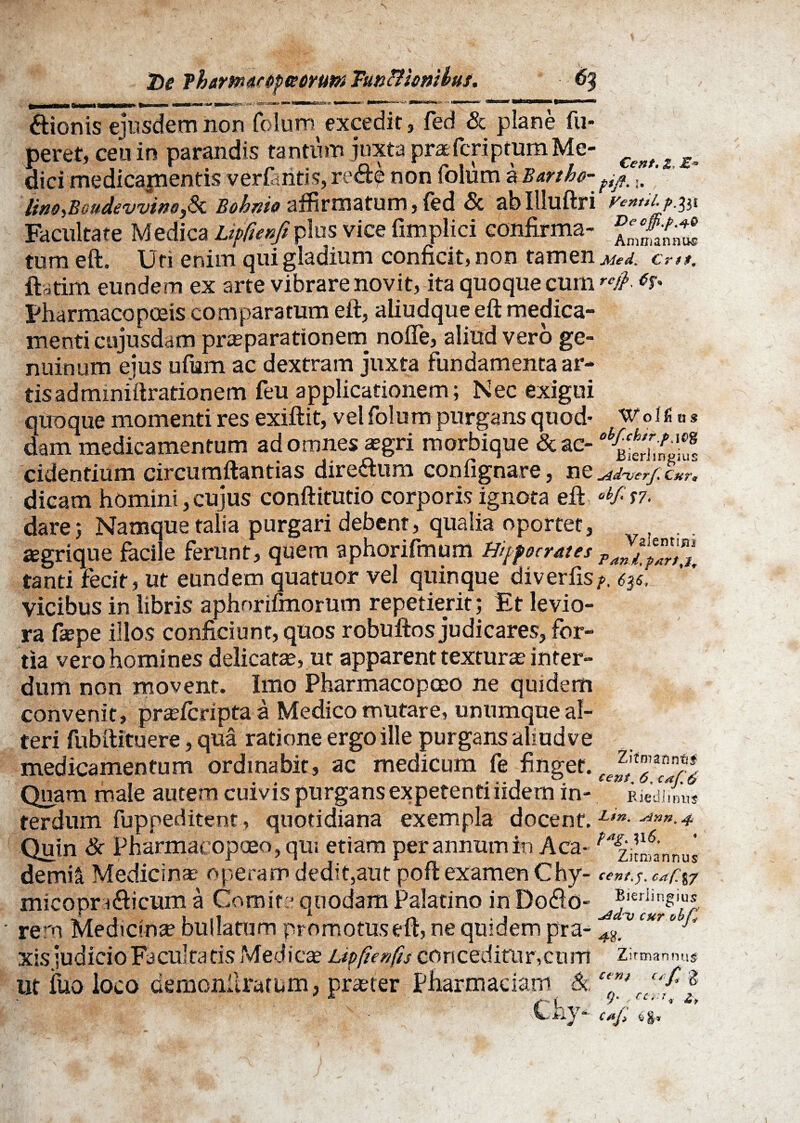 De Pharmacopœorum Functionibus. 63
ctionis ejusdem non ſolum excedit, ſed & planè ſu-
peret, ceu in parandis tantùm juxta præſcriptum Me-
dici medicamentis verſantis, rectè non ſolùm à Bartho-
lino, Boudevvino, & Bohnio affirmatum, ſed & ab Illuſtri
Facultate Medica Lipſienſi plus vice ſimplici confirma-
tum eſt. Uti enim qui gladium conficit, non tamen
ſtatim eundem ex arte vibrare novit, ita quoque cum
Pharmacopœis comparatum eſt, aliudque eſt medica-
menti cujusdam præparationem noſſe, aliud verò ge-
nuinum ejus uſum ac dextram juxta fundamenta ar-
tis adminiſtrationem ſeu applicationem; Nec exigui
quoque momenti res exiſtit, vel ſolum purgans quod-
dam medicamentum ad omnes ægri morbique & ac-
cidentium circumſtantias directum conſignare, ne
dicam homini, cujus conſtitutio corporis ignota eſt
dare; Namque talia purgari debent, qualia oportet,
ægrique facile ferunt, quem aphoriſmum Hippocrates
tanti fecit, ut eundem quatuor vel quinque diverſis
vicibus in libris aphoriſmorum repetierit; Et levio-
ra ſæpe illos conficiunt, quos robuſtos judicares, for-
tia vero homines delicatæ, ut apparent texturæ inter-
dum non movent. Imo Pharmacopœo ne quidem
convenit, præſcripta à Medico mutare, unumque al-
teri ſubſtituere, quâ ratione ergo ille purgans aliudve
medicamentum ordinabit, ac medicum ſe finget.
Quam male autem cuivis purgans expetenti iidem in-
terdum ſuppeditent, quotidiana exempla docent.
Quin & Pharmacopœo, qui etiam per annum in Aca-
demiâ Medicinæ operam dedit, aut poſt examen Chy-
micopracticum à Comite quodam Palatino in Docto-
rem Medicinæ bullatum promotus eſt, ne quidem pra-
xis judicio Facultatis Medicæ Lipſienſis conceditur, cum
ut ſuo loco demonſtratum, præter Pharmaciam &
Chy-
Cent. 2. E-
piſt.
Ventil. p. 331
De off. p. 40
Ammannus
Med. Crit.
reſp. 65.
Wolfius
obſ. chir. p. 108
Bierlingius
Adverſ. Cur.
obſ. 57.
Valentini
Pand. part. 1.
p. 636.
Zitmannus
cent. 6. caſ. 6
Riedlinus
Lin. Ann. 4.
pag. 316.
Zitmannus
cent. 5. caſ. 87
Bierlingius
Adv cur obſ.
48.
Zitmannus